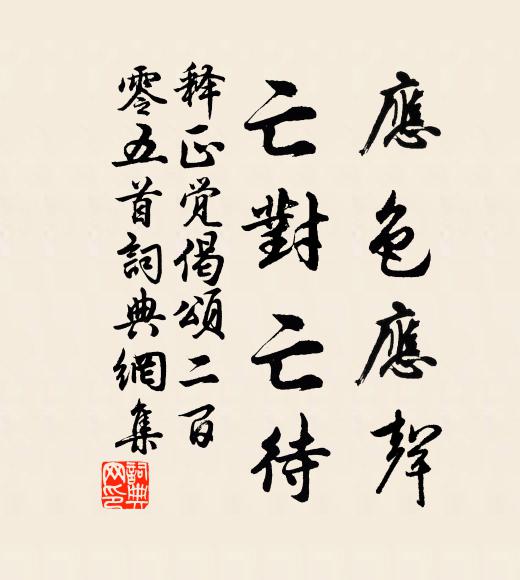 應色應聲
亡對亡待
释正觉偈頌二百
零五首詞典網集
詞典网印